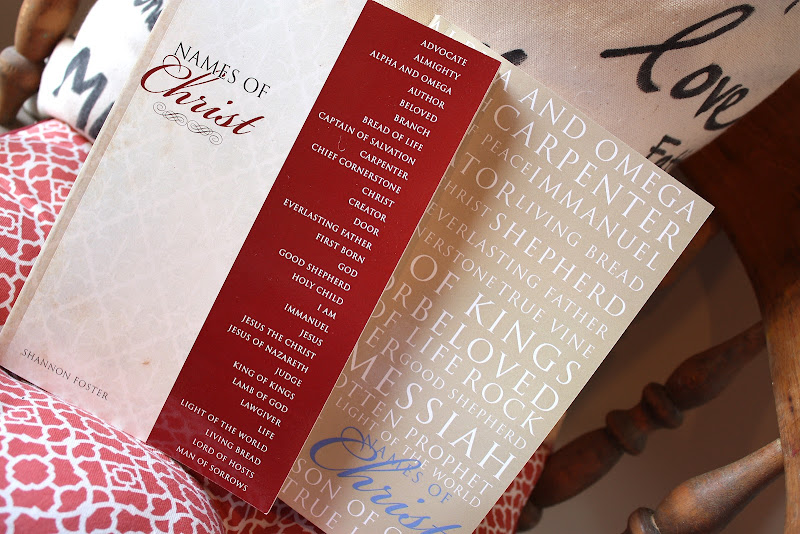 NAMES OF
Christ
SHANNON FOSTER
ADVOCATE
ALMIGHTY
ALPHA AND OMEGA
AUTHOR
BELOVED
BRANCH
BREAD OF LIFE
CAPTAIN OF SALVATION
CARPENTER
CHIEF CORNERSTONE
CHRIST
CREATOR
DOOR
EVERLASTING FATHER
FIRST BORN
GOD
GOOD SHEPHERD
HOLY CHILD
I AM
IMMANUEL
JESUS
JESUS THE CHRIST
JESUS OF NAZARETH
JUDGE
KING OF KINGS
LAMB OF GOD
LAWGIVER
LIFE
LIGHT OF THE WORLD
LIVING BREAD
LORD OF HOSTS
MAN OF SORROWS
A AND OMEGA
CARPENTER
PEACE IMMANUEL
TOR LIVING BREAD
CHRIST SHEPHERD
EVERLASTING FATHER
ERSTONE TRUE VINE
OF KINGS
OR BELOVED
OF LIFE ROCK
ER GOOD SHEPHERD
MESSIAH
OTTEN PROPHET
LIGHT OF THE WORLD
NAMES OF
Christ
SON OF
TRUE
love